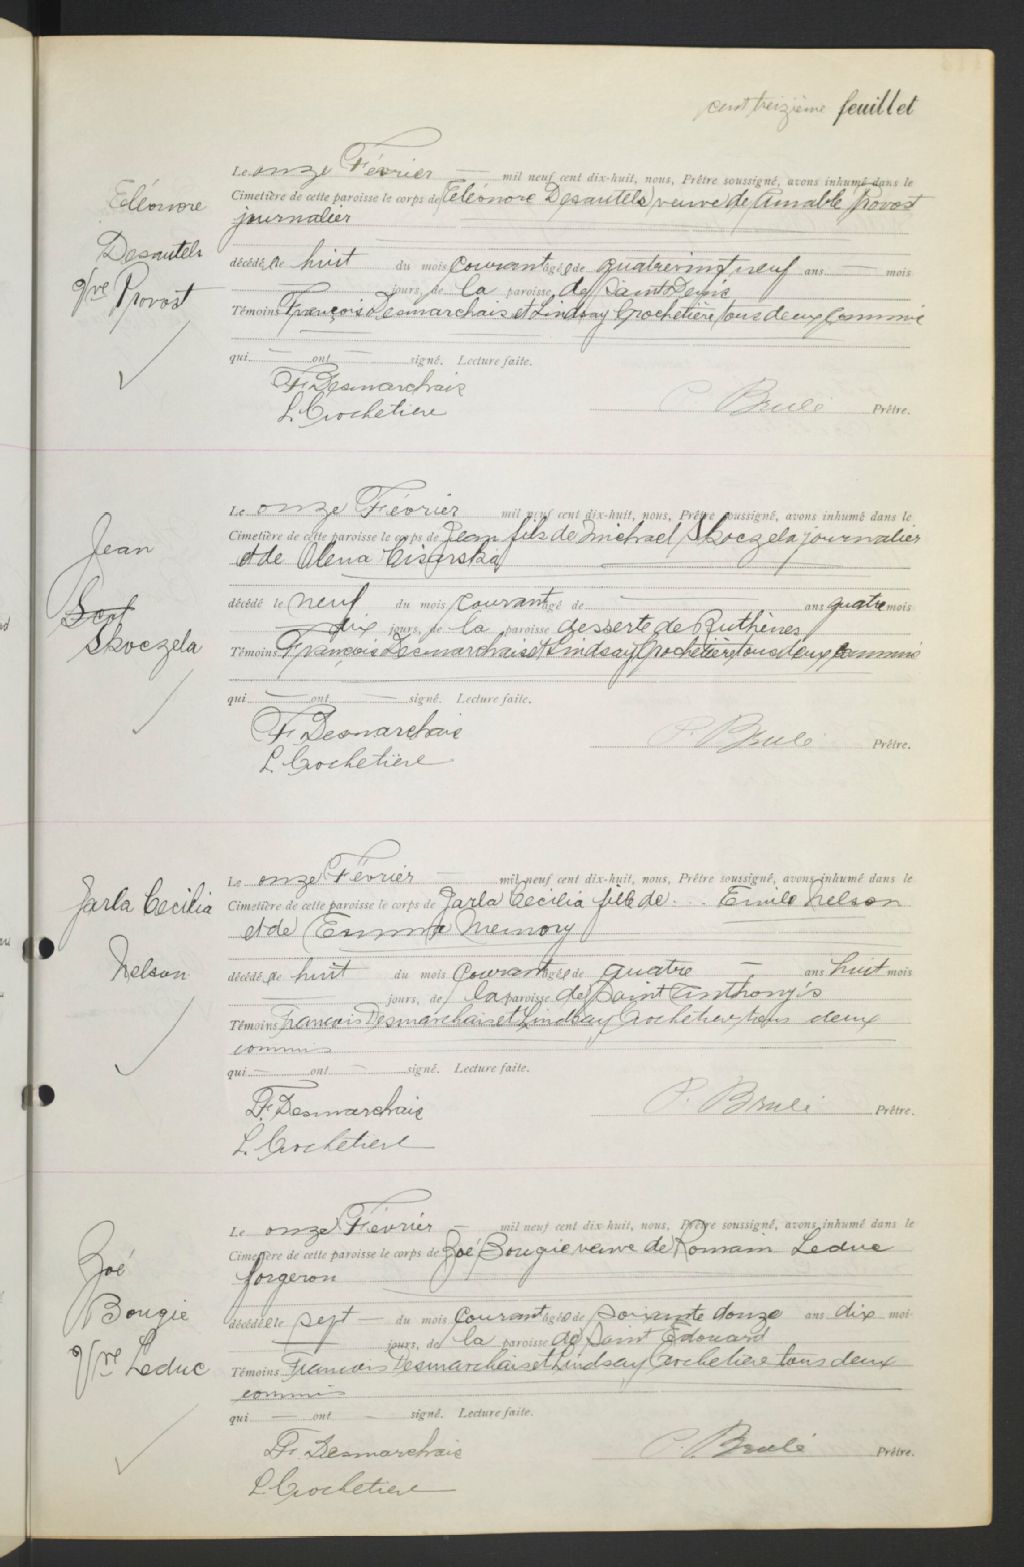 cent treizième feuillet
Eléonore
Desautels
Vve Provost
Le onze Février mil neuf cent dix-huit, nous, Prêtre soussigné, avons inhumé dans le
Cimetière de cette paroisse le corps de Eléonore Desautels veuve de Amable Provost
journalier
décédée le huit du mois courant agée de quatrevingt neuf ans mois
jours, de la paroisse de Saint Denis
Témoins François Desmarchais et Lindsay Crochetière tous deux commis
qui ont signé. Lecture faite.
F. Desmarchais
L. Crochetiere
P. Brulé Prêtre.
Jean
Scot
Skoczela
Le onze Février mil neuf cent dix-huit, nous, Prêtre soussigné, avons inhumé dans le
Cimetière de cette paroisse le corps de Jean fils de Michael Skoczela journalier
et de Olena Cisarska
décédé le neuf du mois courant agé de ans quatre mois
dix jours, de la paroisse desserte de Ruthènes
Témoins François Desmarchais et Lindsay Crochetière tous deux commis
qui ont signé. Lecture faite.
F. Desmarchais
L. Crochetière
P. Brulé Prêtre.
Jarla Cecilia
Nelson
Le onze Février mil neuf cent dix-huit, nous, Prêtre soussigné, avons inhumé dans le
Cimetière de cette paroisse le corps de Jarla Cecilia fille de Emile Nelson
et de Emma Memory
décédée le huit du mois courant agée de quatre ans huit mois
jours, de la paroisse de Saint Anthony's
Témoins François Desmarchais et Lindsay Crochetiere tous deux
commis
qui ont signé. Lecture faite.
F. Desmarchais
L. Crochetiere
P. Brulé Prêtre.
Zoé
Bougie
Vve Leduc
Le onze Février mil neuf cent dix-huit, nous, Prêtre soussigné, avons inhumé dans le
Cimetière de cette paroisse le corps de Zoé Bougie veuve de Romain Leduc
forgeron
décédée le sept du mois courant agée de soixante douze ans dix moi
jours, de la paroisse de Saint Edouard
Témoins François Desmarchais et Lindsay Crochetiere tous deux
commis
qui ont signé. Lecture faite.
F. Desmarchais
L. Crochetiere
P. Brulé Prêtre.